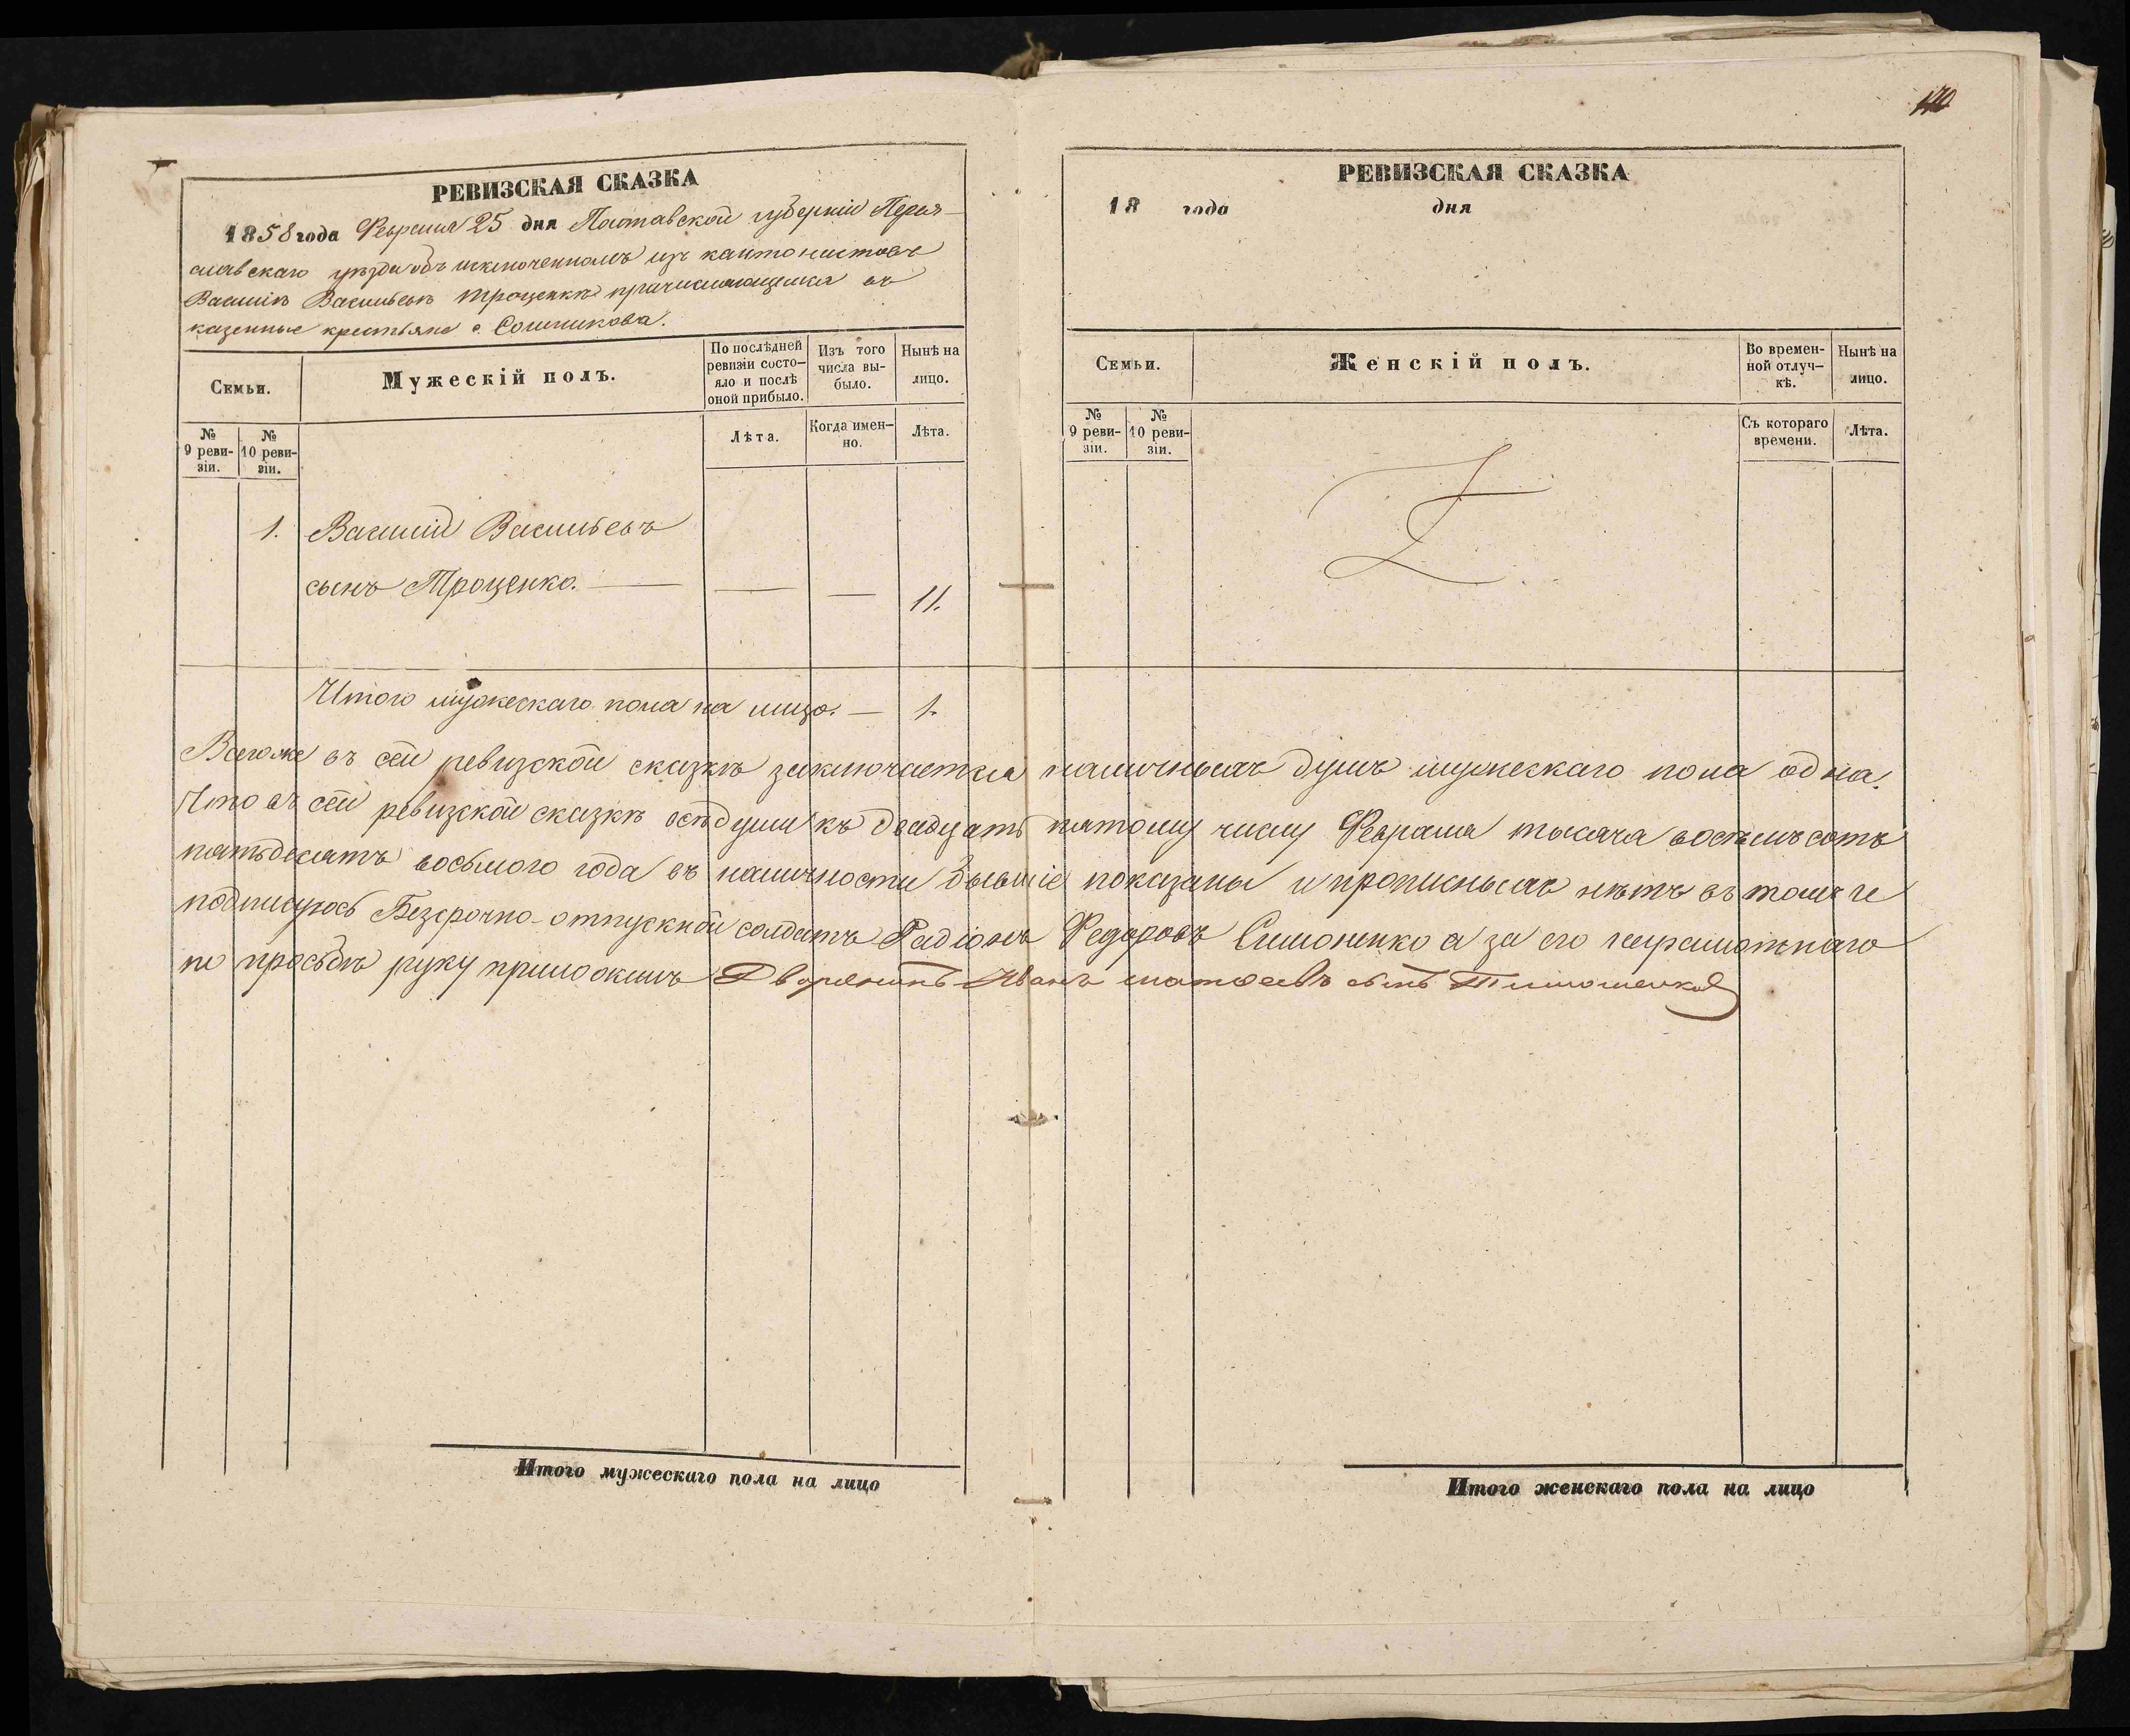 140
РЕВИЗСКАЯ СКАЗКА
1858 года Февраля 25 дня Полтавской губерніи Перея-
славскаго уѣзда объ исключенномъ изъ кантонистовъ
Василіѣ Васильевѣ Троценкѣ причисляющемся въ
казенные крестьяне с. Сошникова.
Семьи.
Мужескій полъ.
По послѣдней
ревизіи состо-
яло и послѣ
оной прибыло.
Изъ того
числа вы-
было.
Нынѣ на
лицо.
№
9 реви-
зіи.
№
10 реви-
зіи.
Лѣта.
Когда имен-
но.
Лѣта.
1. Василій Васильевъ
сынъ Троценко. — — — 11.
Итого мужескаго пола на лицо. — 1.
РЕВИЗСКАЯ СКАЗКА
18 года дня
Семьи.
Женскій полъ.
Во времен-
ной отлуч-
кѣ.
Нынѣ на
лицо.
№
9 реви-
зіи.
№
10 реви-
зіи.
Съ котораго
времени.
Лѣта.
Всего же въ сей ревизской сказкѣ заключается наличныхъ душъ мужескаго пола одна.
Что въ сей ревизской сказкѣ всѣ души къ двадцать пятому числу Февраля тысяча восемьсотъ
пятьдесятъ восьмого года въ наличности бывшіе показаны и прописныхъ нѣтъ въ томъ и
подписуюсь Безсрочно-отпускной солдатъ Радіонъ Федоровъ Симоненко а за его неграмотнаго
по просьбѣ руку приложилъ Дворянинъ Иванъ Матвеевъ сынъ
Итого мужескаго пола на лицо
Итого женскаго пола на лицо